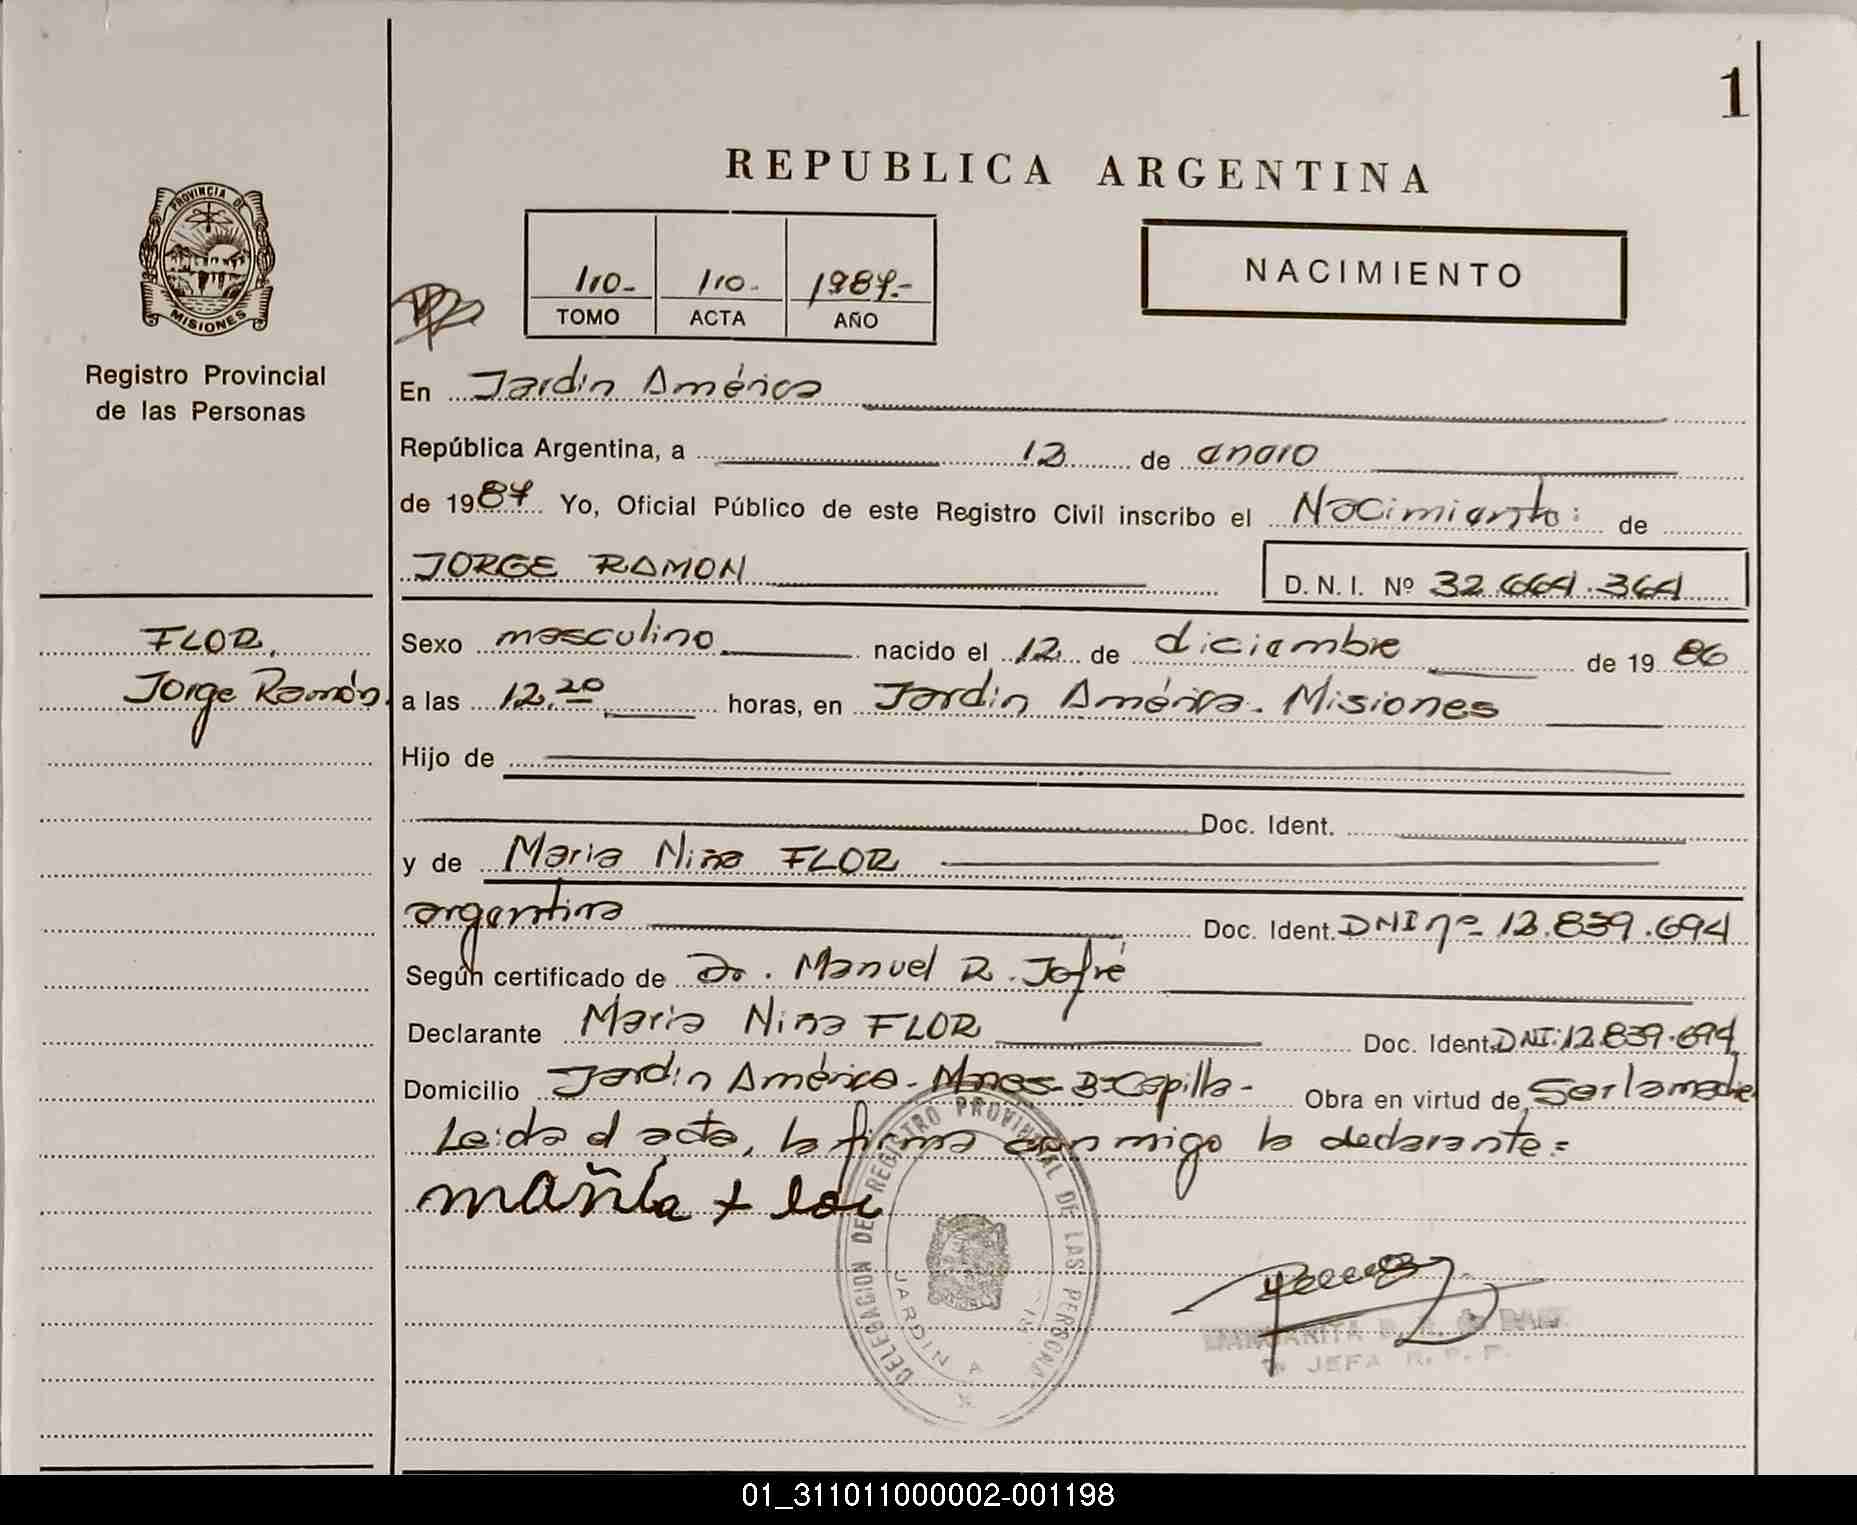 1
REPUBLICA ARGENTINA
PROVINCIA DE
MISIONES
Registro Provincial
de las Personas
1ro.- 1ro.- 1987.-
TOMO ACTA AÑO
NACIMIENTO
En Jardín América
República Argentina, a 12 de enero
de 1987 Yo, Oficial Público de este Registro Civil inscribo el Nacimiento: de
JORGE RAMON D. N. I. Nº 32.664.364
FLOR,
Jorge Ramón.
Sexo masculino nacido el 12 de diciembre de 19 86
a las 12,20 horas, en Jardín América. Misiones
Hijo de
Doc. Ident.
y de Maria Nina FLOR
argentina Doc. Ident. DNI nº 12.839.694
Según certificado de Dr. Manuel R. Jofré
Declarante Maria Nina FLOR Doc. Ident. DNI: 12.839.694
Domicilio Jardín América - Mnes - Bº Capilla - Obra en virtud de, Ser la madre
Leida el acta, la firma conmigo la declarante =
DELEGACION DE REGISTRO PROVINCIAL DE LAS PERSONAS
JARDIN A
JEFA R. P. P.
01_311011000002-001198